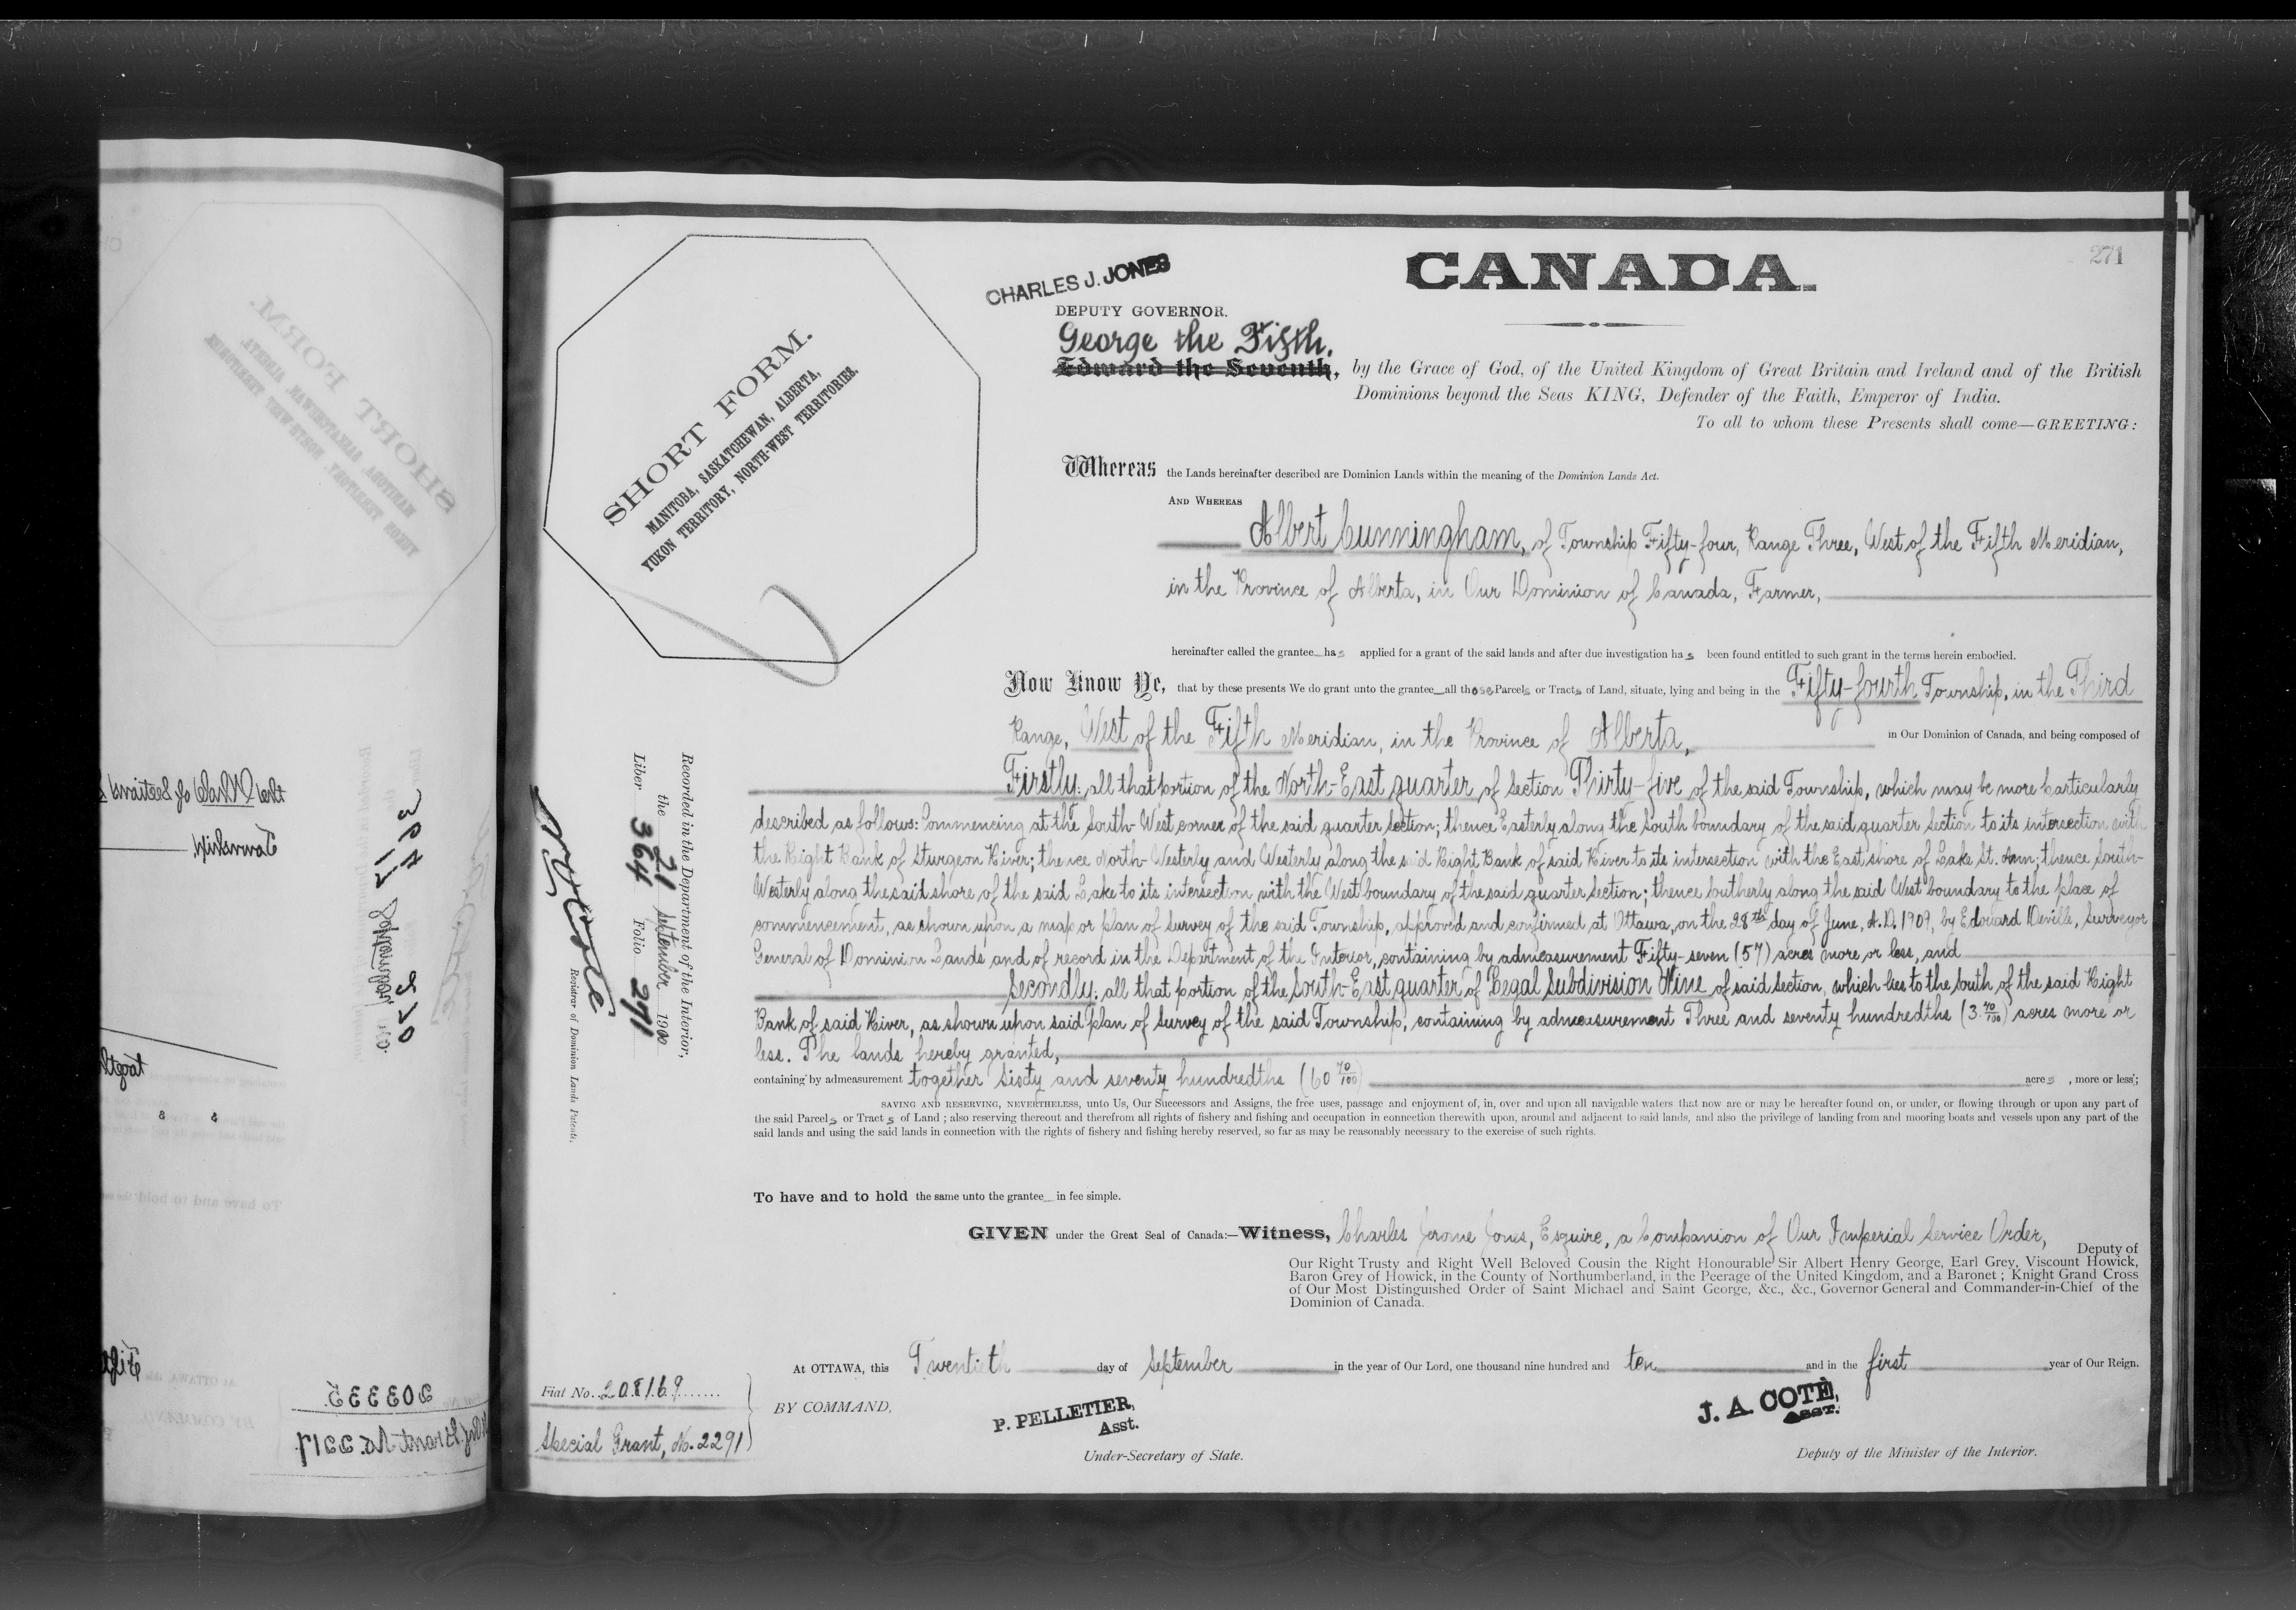 271
CANADA.
CHARLES J. JONES
DEPUTY GOVERNOR.
George the Fifth.
Edward the Seventh, by the Grace of God, of the United Kingdom of Great Britain and Ireland and of the British
Dominions beyond the Seas KING, Defender of the Faith, Emperor of India.
To all to whom these Presents shall come—GREETING:
SHORT FORM.
MANITOBA, SASKATCHEWAN, ALBERTA,
YUKON TERRITORY, NORTH-WEST TERRITORIES.
Whereas the Lands hereinafter described are Dominion Lands within the meaning of the Dominion Lands Act.
AND WHEREAS
Albert Cunningham, of Township Fifty-four, Range Three, West of the Fifth Meridian,
in the Province of Alberta, in Our Dominion of Canada, Farmer,
hereinafter called the grantee has applied for a grant of the said lands and after due investigation has been found entitled to such grant in the terms herein embodied.
Now Know Ye, that by these presents We do grant unto the grantee all those Parcels or Tracts of Land, situate, lying and being in the Fifty-fourth Township, in the Third
Range, West of the Fifth Meridian, in the Province of Alberta, in Our Dominion of Canada, and being composed of
Firstly: all that portion of the North-East quarter of Section Thirty-five of the said Township, which may be more particularly
described as follows: Commencing at the South-West corner of the said quarter Section; thence Easterly along the South boundary of the said quarter section to its intersection with
the Right Bank of Sturgeon River; thence North-Westerly and Westerly along the said Right Bank of said River to its intersection with the East shore of Lake St. Ann; thence South-
Westerly along the said shore of the said Lake to its intersection with the West boundary of the said quarter Section; thence Southerly along the said West boundary to the place of
commencement, as shown upon a map or plan of Survey of the said Township, approved and confirmed at Ottawa, on the 28th day of June, A.D. 1909, by Edouard Deville, Surveyor
General of Dominion Lands and of record in the Department of the Interior, containing by admeasurement Fifty-seven (57) acres more or less, and
Secondly: all that portion of the South-East quarter of Legal Subdivision Nine of said Section, which lies to the South of the said Right
Bank of said River, as shown upon said plan of Survey of the said Township, containing by admeasurement Three and seventy hundredths (3 70/100) acres more or
less. The lands hereby granted,
containing by admeasurement together Sixty and seventy hundredths (60 70/100) acres , more or less;
SAVING AND RESERVING, NEVERTHELESS, unto Us, Our Successors and Assigns, the free uses, passage and enjoyment of, in, over and upon all navigable waters that now are or may be hereafter found on, or under, or flowing through or upon any part of
the said Parcels or Tracts of Land ; also reserving thereout and therefrom all rights of fishery and fishing and occupation in connection therewith upon, around and adjacent to said lands, and also the privilege of landing from and mooring boats and vessels upon any part of the
said lands and using the said lands in connection with the rights of fishery and fishing hereby reserved, so far as may be reasonably necessary to the exercise of such rights.
To have and to hold the same unto the grantee in fee simple.
GIVEN under the Great Seal of Canada:—Witness, Charles Jerome Jones, Esquire, a Companion of Our Imperial Service Order,
Deputy of
Our Right Trusty and Right Well Beloved Cousin the Right Honourable Sir Albert Henry George, Earl Grey, Viscount Howick,
Baron Grey of Howick, in the County of Northumberland, in the Peerage of the United Kingdom, and a Baronet ; Knight Grand Cross
of Our Most Distinguished Order of Saint Michael and Saint George, &c., &c., Governor General and Commander-in-Chief of the
Dominion of Canada.
At OTTAWA, this Twentieth day of September in the year of Our Lord, one thousand nine hundred and ten and in the first year of Our Reign.
BY COMMAND,
P. PELLETIER,
Asst.
Under-Secretary of State.
J. A. COTÉ,
ASST.
Deputy of the Minister of the Interior.
Fiat No. 208169
Special Grant, No. 2291
Recorded in the Department of the Interior,
the 21 September 1900
Liber 364 Folio 271
Registrar of Dominion Lands Patents.